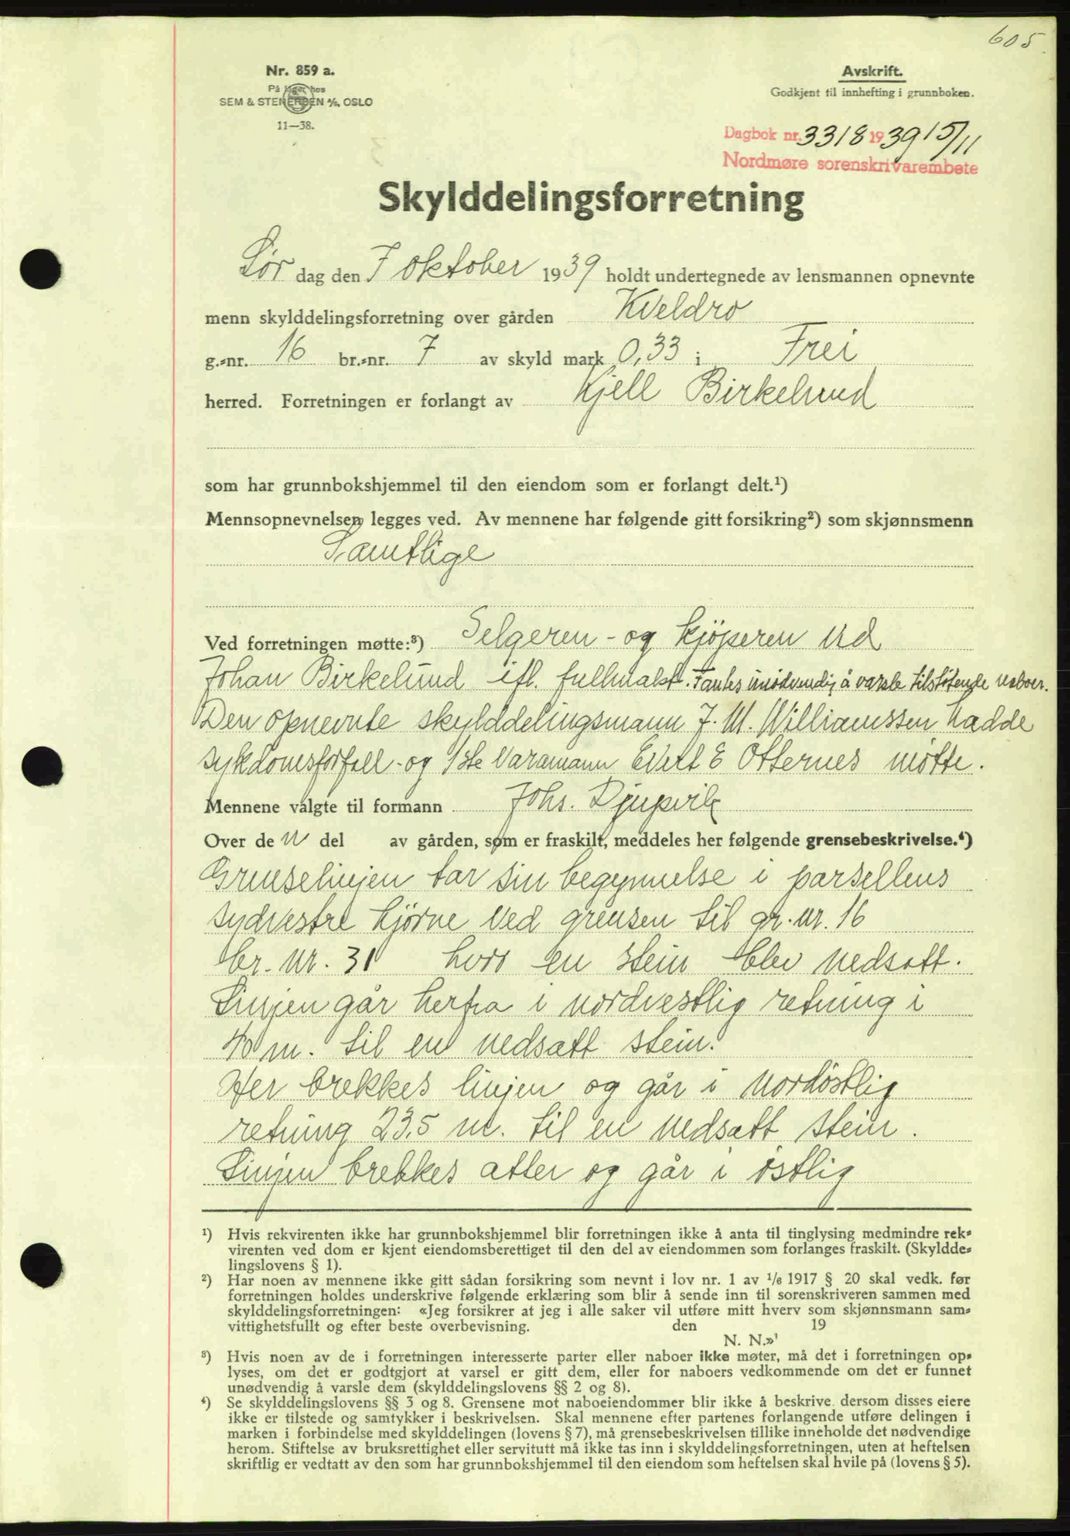 605.
Nr. 859 a.
På lager hos
SEM & STENERSEN A/S, OSLO
11—38.
Avskrift.
Godkjent til innhefting i grunnboken.
Dagbok nr. 3318 1939 15/11
Nordmøre sorenskrivarembete
Skylddelingsforretning
Lør dag den 7 oktober 1939 holdt undertegnede av lensmannen opnevnte
menn skylddelingsforretning over gården Kveldro
g.-nr. 16 br.-nr. 7 av skyld mark 0,33 i Frei
herred. Forretningen er forlangt av Kjell Birkelund
som har grunnbokshjemmel til den eiendom som er forlangt delt.¹)
Mennsopnevnelsen legges ved. Av mennene har følgende gitt forsikring²) som skjønnsmenn
Samtlige
Ved forretningen møtte:³) Selgeren - og kjøperen ved
Johan Birkelund ifl. fullmakt. Fantes unødvendig å varsle tilstøtende naboer.
Den opnevnte skylddelingsmann J. M. Williamssen hadde
sykdomsforfall - og 1ste varamann Evert E Otternes møtte.
Mennene valgte til formann Johs. Djupvik
Over de n del av gården, som er fraskilt, meddeles her følgende grensebeskrivelse.⁴)
Grenselinjen tar sin begynnelse i parsellens
sydvestre hjørne ved grensen til gr. nr. 16
br. nr. 31 hvor en stein blev nedsatt.
Linjen går herfra i nordvestlig retning i
40 m. til en nedsatt stein.
Her brekkes linjen og går i nordøstlig
retning 23,5 m. til en nedsatt stein.
Linjen brekkes atter og går i østlig
¹) Hvis rekvirenten ikke har grunnbokshjemmel blir forretningen ikke å anta til tinglysing medmindre rek-
virenten ved dom er kjent eiendomsberettiget til den del av eiendommen som forlanges fraskilt. (Skyldde-
lingslovens § 1).
²) Har noen av mennene ikke gitt sådan forsikring som nevnt i lov nr. 1 av 1/6 1917 § 20 skal vedk. før
forretningen holdes underskrive følgende erklæring som blir å sende inn til sorenskriveren sammen med
skylddelingsforretningen: «Jeg forsikrer at jeg i alle saker vil utføre mitt hverv som skjønnsmann sam-
vittighetsfullt og efter beste overbevisning. den 19
N. N.»
³) Hvis noen av de i forretningen interesserte parter eller naboer ikke møter, må det i forretningen op-
lyses, om det er godtgjort at varsel er gitt dem, eller for naboers vedkommende om det er funnet
unødvendig å varsle dem (skylddelingslovens §§ 2 og 8).
⁴) Se skylddelingslovens §§ 3 og 8. Grensene mot naboeiendommer blir ikke å beskrive dersom disses eiere
ikke er tilstede og samtykker i beskrivelsen. Skal mennene efter partenes forlangende utføre delingen i
marken i forbindelse med skylddelingen (lovens § 7), må grensebeskrivelsen tillike inneholde det nødvendige
herom. Stiftelse av bruksrettighet eller servitutt må ikke tas inn i skylddelingsforretningen, uten at heftelsen
skriftlig er vedtatt av den som har grunnbokshjemmel til den eiendom som heftelsen skal hvile på (lovens § 5).